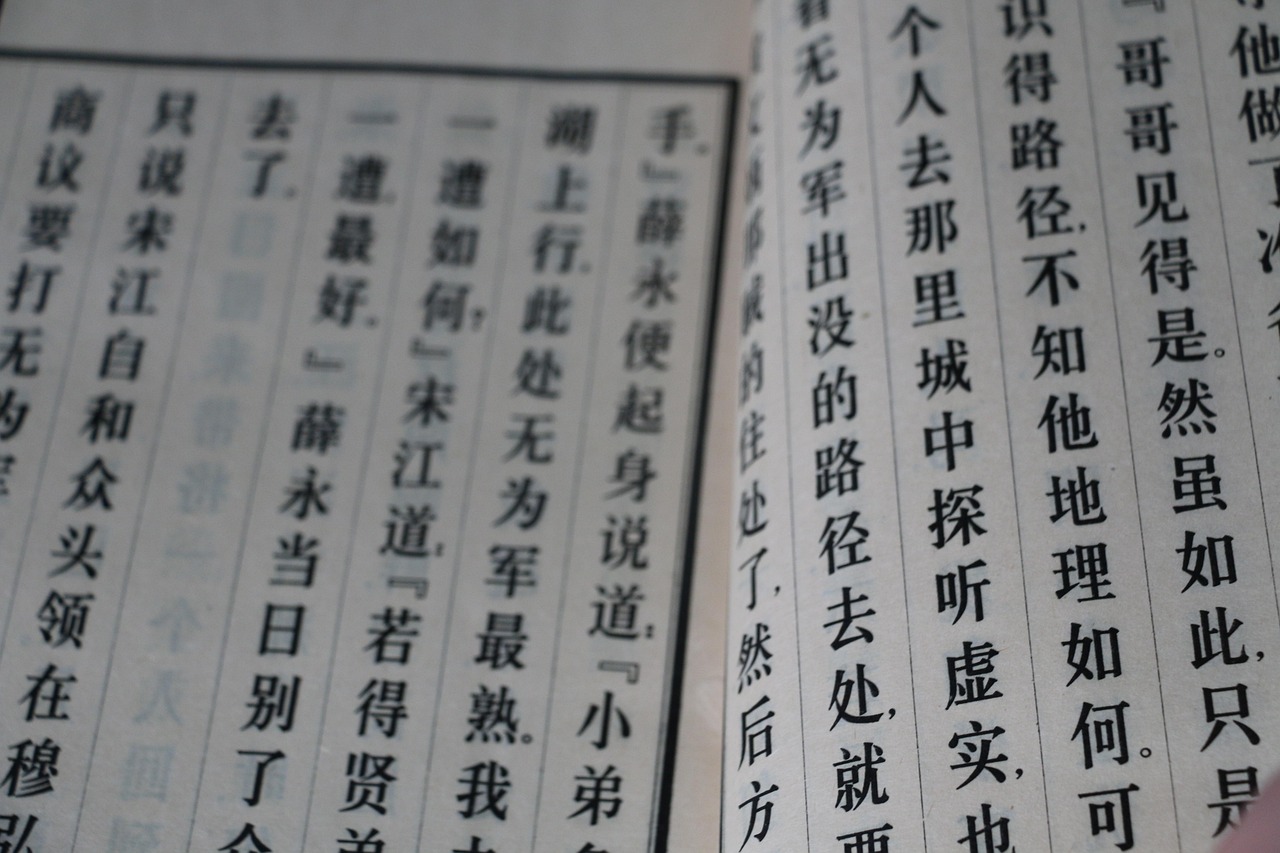 他做
『哥哥见得是。然虽如此,只是
识得路径,不知他地理如何。可
个人去那里城中探听虚实,也
看无为军出没的路径去处,就要
的住处了,然后方
手。』薛永便起身说道:『小弟
湖上行。此处无为军最熟。我
一遭如何,』宋江道:『若得贤弟
一遭。最好。』薛永当日别了众
去了。
只说宋江自和众头领在穆弘
商议要打无为军